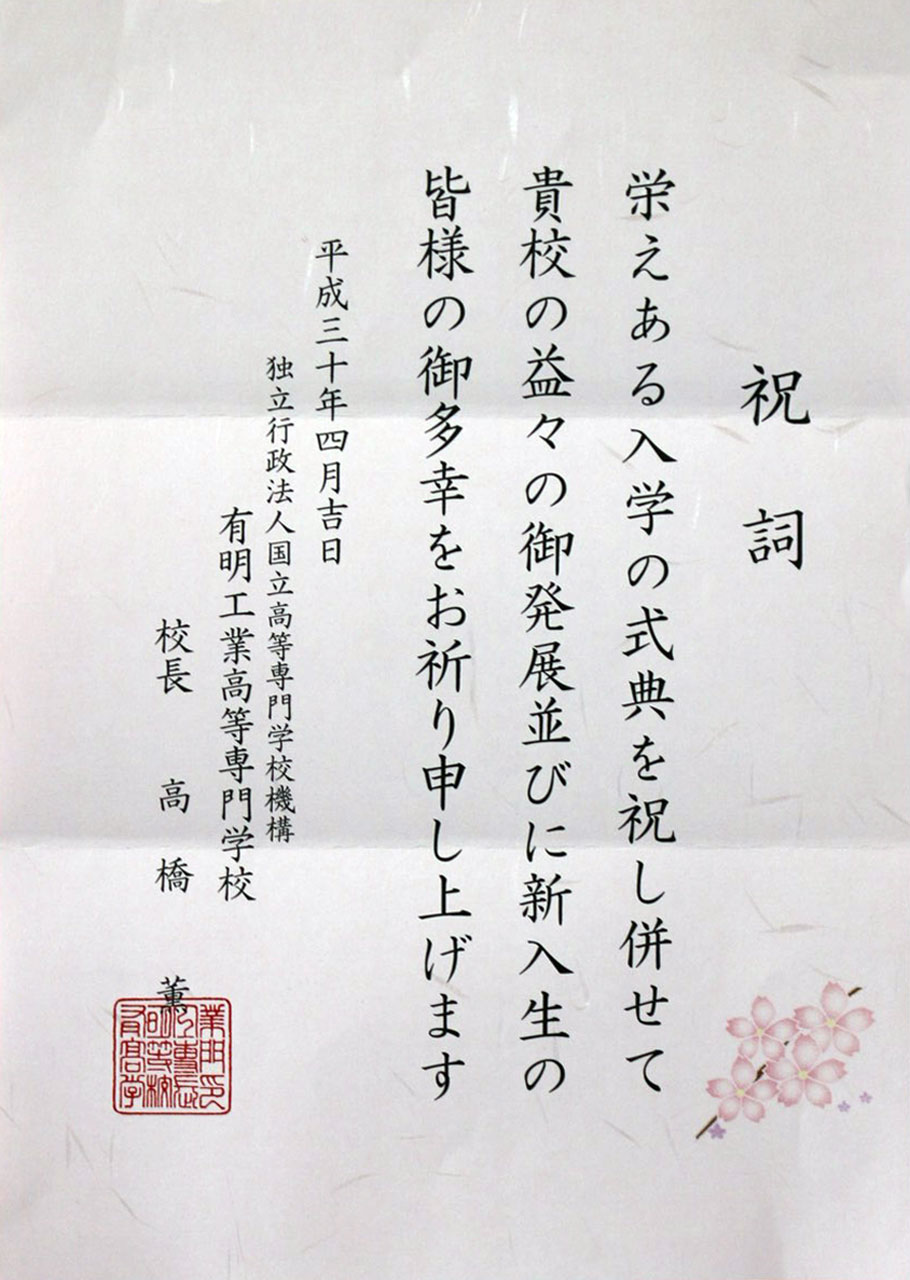 祝詞
栄えある入学の式典を祝し併せて
貴校の益々の御発展並びに新入生の
皆様の御多幸をお祈り申し上げます
平成三十年四月吉日
独立行政法人国立高等専門学校機構
有明工業高等専門学校
校長 高橋 薫